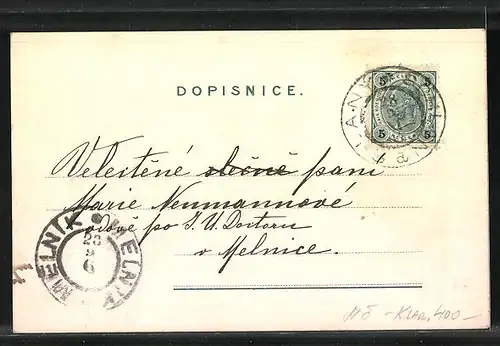 DOPISNICE.
LANY
5 5
5 5
Velectěné slečně paní
Marie Neumannové
vdově po J. U. Doctoru
v Melnice.
MELNIK MELNIK
23
9
- Klad. 400 -